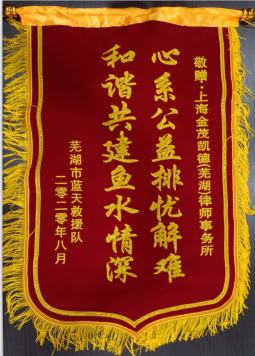 敬赠·上海金茂凯德芜湖律师事务所
心系公益排忧解难
和谐共建鱼水情深
芜湖市蓝天救援队
二零二零年八月